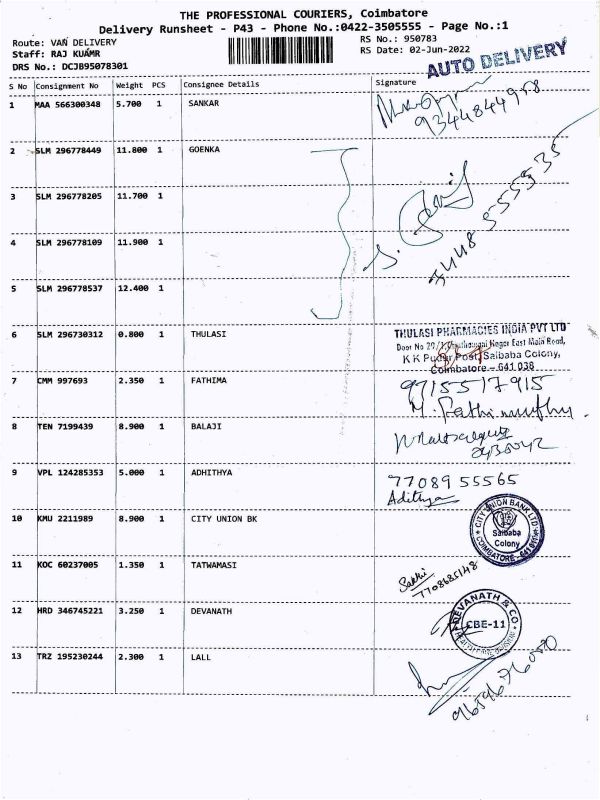 THE PROFESSIONAL COURIERS, Coimbatore
Delivery Runsheet - P43 - Phone No.:0422-3505555 - Page No.:1
Route: VAN DELIVERY
RS No.: 950783
Staff: RAJ KUAMR
RS Date: 02-Jun-2022
DRS No.: DCJB95078301
AUTO DELIVERY
S No Consignment No Weight PCS Consignee Details Signature
1 MAA 566300348 5.700 1 SANKAR
9344844958
2 SLM 296778449 11.800 1 GOENKA
3 SLM 296778205 11.700 1
4 SLM 296778109 11.900 1
5 SLM 296778537 12.400 1
6 SLM 296730312 0.800 1 THULASI
THULASI PHARMACIES INDIA PVT LTD
Door No 29/ Nagar East Main Road,
K K Pudur Post Saibaba Colony,
Coimbatore - 641 038
7 CMM 997693 2.350 1 FATHIMA
9715517915
8 TEN 7199439 8.900 1 BALAJI
9 VPL 124285353 5.000 1 ADHITHYA
77089 55565
Adithya
10 KMU 2211989 8.900 1 CITY UNION BK
CITY UNION BANK LTD
Saibaba
Colony
COIMBATORE - 641
11 KOC 60237005 1.350 1 TATWAMASI
Sakthi
7708685148
12 HRD 346745221 3.250 1 DEVANATH
DEVANATH & CO
CBE-11
13 TRZ 195230244 2.300 1 LALL